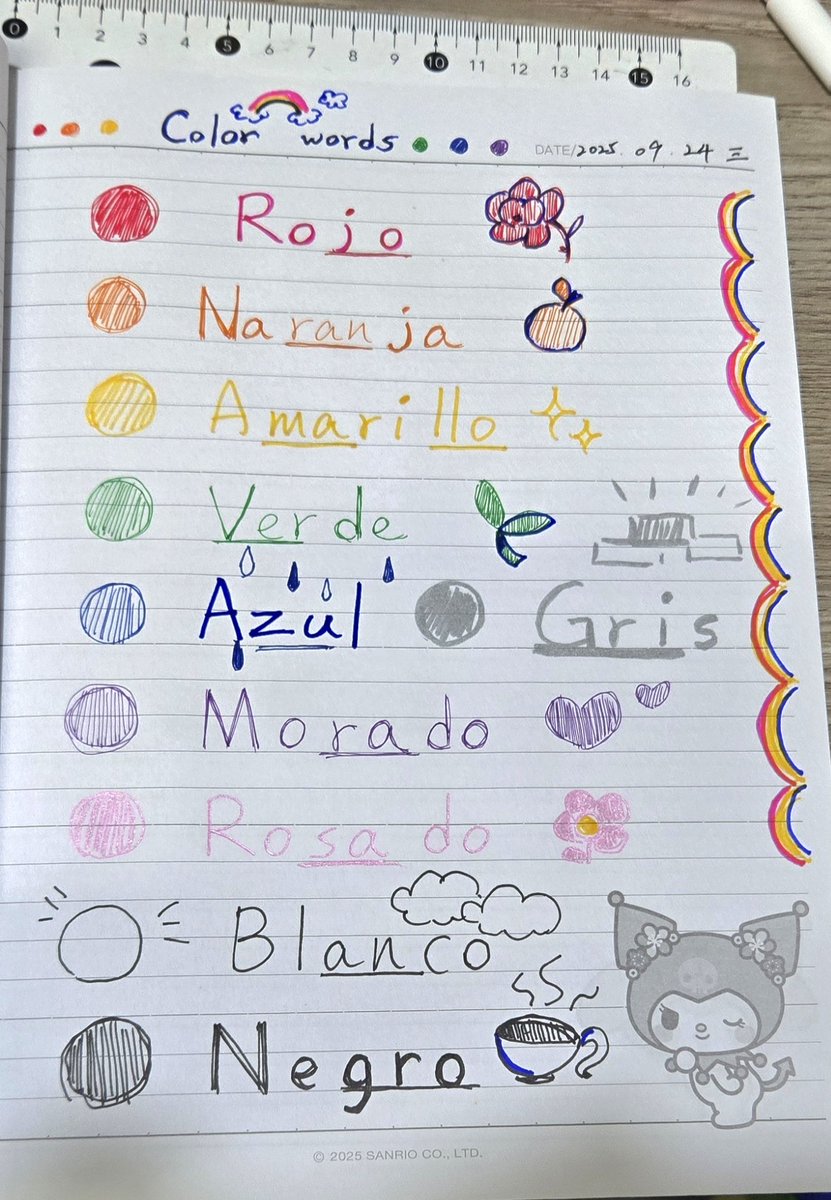 0 1 2 3 4 5 6 7 8 9 10 11 12 13 14 15 16
Color words
DATE/2025.09.24 三
Rojo
Naranja
Amarillo
Verde
Azul Gris
Morado
Rosado
Blanco
Negro
© 2025 SANRIO CO., LTD.